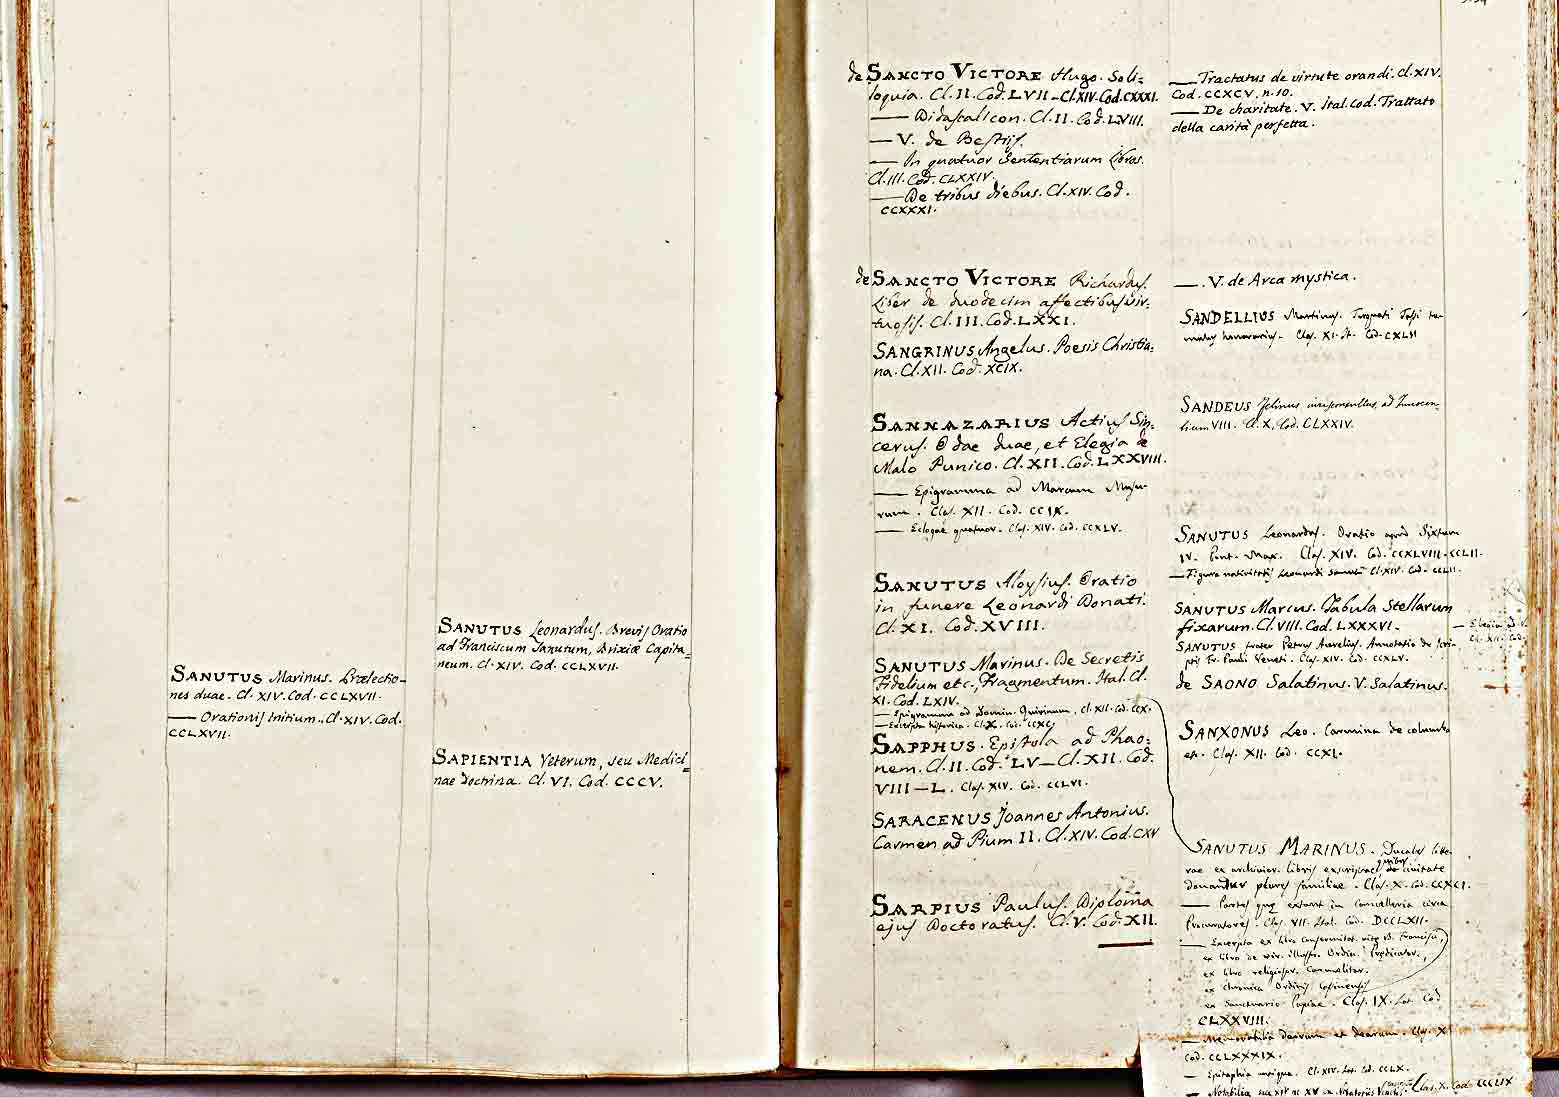 SANUTUS Marinus. Prælectio-
nes duae. Cl. XIV. Cod. CCLXVII.
— Orationis Initium. Cl. XIV. Cod.
CCLXVII.
SANUTUS Leonardus. Brevis Oratio
ad Franciscum Sanutum, Brixiæ Capita=
neum. Cl. XIV. Cod. CCLXVII.
SAPIENTIA Veterum, seu Medici=
nae doctrina. Cl. VI. Cod. CCCV.
de SANCTO VICTORE Hugo. Soli=
loquia. Cl. II. Cod. LVII — Cl. XIV. Cod. CXXXI.
— Didascalicon. Cl. II. Cod. LVIII.
— V. de Bestiis.
— In quatuor Sententiarum Libros.
Cl. III. Cod. CLXXIV.
— De tribus diebus. Cl. XIV. Cod.
CCXXXI.
de SANCTO VICTORE Richardus.
Liber de duodecim affectibus vir-
tuosis. Cl. III. Cod. LXXI.
SANGRINUS Angelus. Poesis Christia=
na. Cl. XII. Cod. XCIX.
SANNAZARIUS Actius Sin=
cerus. Odae duae, et Elegia de
Malo Punico. Cl. XII. Cod. LXXVIII.
— Epigramma ad Marcum Musu-
rum. Clas. XII. Cod. CCIX.
— Eclogae quatuor. Clas. XIV. Cod. CCXLV.
SANUTUS Aloysius. Oratio
in funere Leonardi Donati.
Cl. XI. Cod. XVIII.
SANUTUS Marinus. De Secretis
Fidelium etc., Fragmentum. Ital. Cl.
XI. Cod. LXIV.
— Epigramma ad Domin. Quirinum. Cl. XII. Cod. CCX.
— Excerpta historica. Cl. X. Cod. CCXC
SAPPHUS. Epistola ad Phao=
nem. Cl. II. Cod. LV — Cl. XII. Cod.
VIII — L. Clas. XIV. Cod. CCLVI.
SARACENUS Joannes Antonius.
Carmen ad Pium II. Cl. XIV. Cod. CXV
SARPIUS Paulus. Diploma
ejus Doctoratus. Cl. V. Cod. XII.
— Tractatus de virtute orandi. Cl. XIV.
Cod. CCXCV. n. 10.
— De charitate. V. Ital. cod. Trattato
della carità perfetta.
— . V. de Arca mystica.
SANDELLIUS Martinus. Torquati Tassi tu-
mulus honorarius. Clas. XI. It. Cod. CXLII
SANDEUS Felinus iurisconsultus, ad Innocen-
tium VIII. Cl. X, Cod. CLXXIV.
SANUTUS Leonardus. Oratio apud Sixtum
IV. Pont. Max. Clas. XIV. Cod. CCXLVIII. CCLII.
— Figura nativitatis Leonardi Sanuti Cl. XIV. Cod. CCLII.
SANUTUS Marcus. Tabula Stellarum
fixarum. Cl. VIII. Cod. LXXXVI.
— Elegia ad
Cl. XII. Cod.
SANUTUS frater Petrus Aurelius. Annotatio de scri-
ptis Fr. Pauli Veneti. Clas. XIV. Cod. CCXLV.
de SAONO Salatinus. V. Salatinus.
SANXONUS Leo. Carmina de columba
etc. Clas. XII. Cod. CCXI.
SANUTUS MARINUS. Ducales litte-
rae ex archivior. libris exscriptae quibus civitate
donantur plures familiae. Clas. X. Cod. CCXCI.
— Partes quae extant in cancellaria circa
Procuratores. Clas. VII. Ital. Cod. DCCLXII.
— Excerpta ex libro conformitat. vitae B. Francisci,
ex libro de vir. illustr. Ordin. Praedicator.,
ex libro religiosor. Carmelitar.
ex chronica Ordinis Casinensis
ex Sanctuario Papiae. Clas. IX. Lat. Cod
CLXXVIII.
— Memorabilia dearum et dearum. Clas. X
Cod. CCLXXXIX.
— Epitaphia antiqua. Cl. XIV. Lat. Cod. CCLX.
— Notabilia sec. XIV ac XV ex Notatoriis Clas. X. Cod. CCCLIX